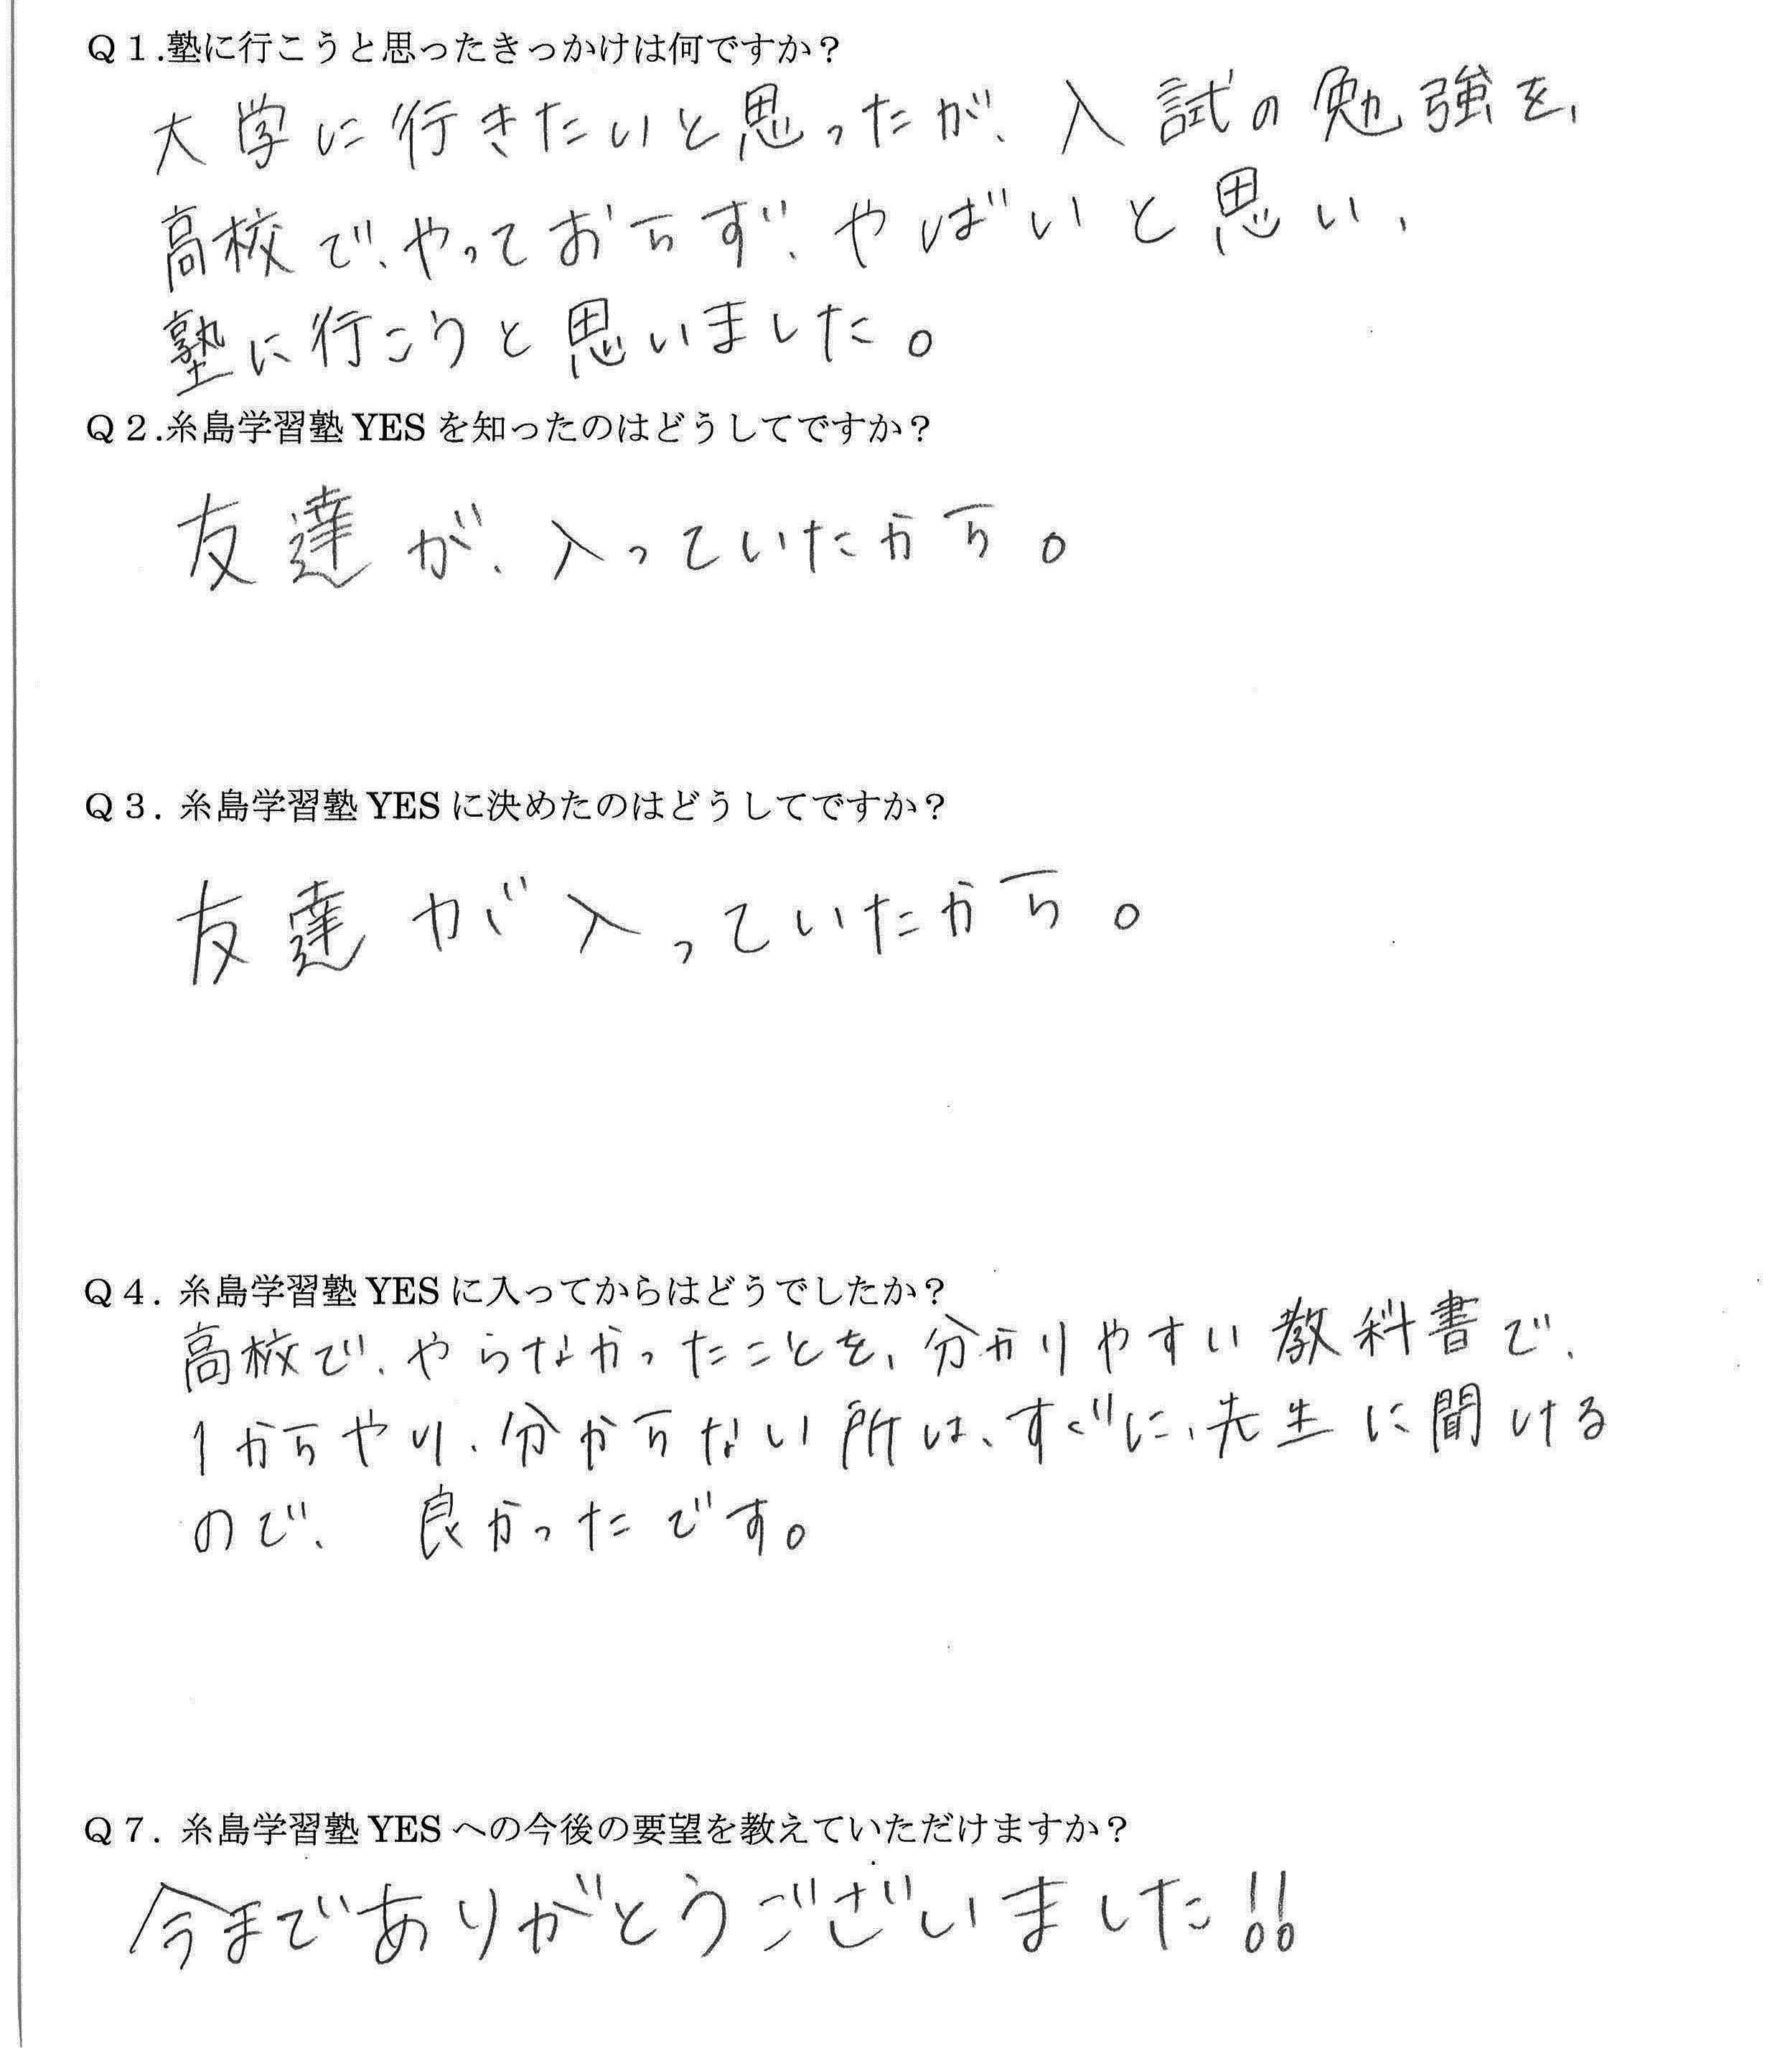 Q1.塾に行こうと思ったきっかけは何ですか？
大学に行きたいと思ったが、入試の勉強を、
高校で、やっておらず、やばいと思い、
塾に行こうと思いました。
Q2.糸島学習塾YESを知ったのはどうしてですか？
友達が、入っていたから。
Q3. 糸島学習塾YESに決めたのはどうしてですか？
友達が入っていたから。
Q4. 糸島学習塾YESに入ってからはどうでしたか？
高校で、やらなかったことを、分かりやすい教科書で、
1からやり、分からない所は、すぐに、先生に聞ける
ので、良かったです。
Q7. 糸島学習塾YESへの今後の要望を教えていただけますか？
今までありがとうございました!!